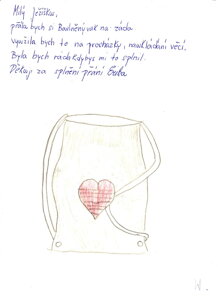 Milý Ježíšku,
přála bych si Bavlněný vak na záda
využila bych to na procházky, naukládání věcí.
Byla bych ráda kdybys mi to splnil.
Děkuji za splnění přání